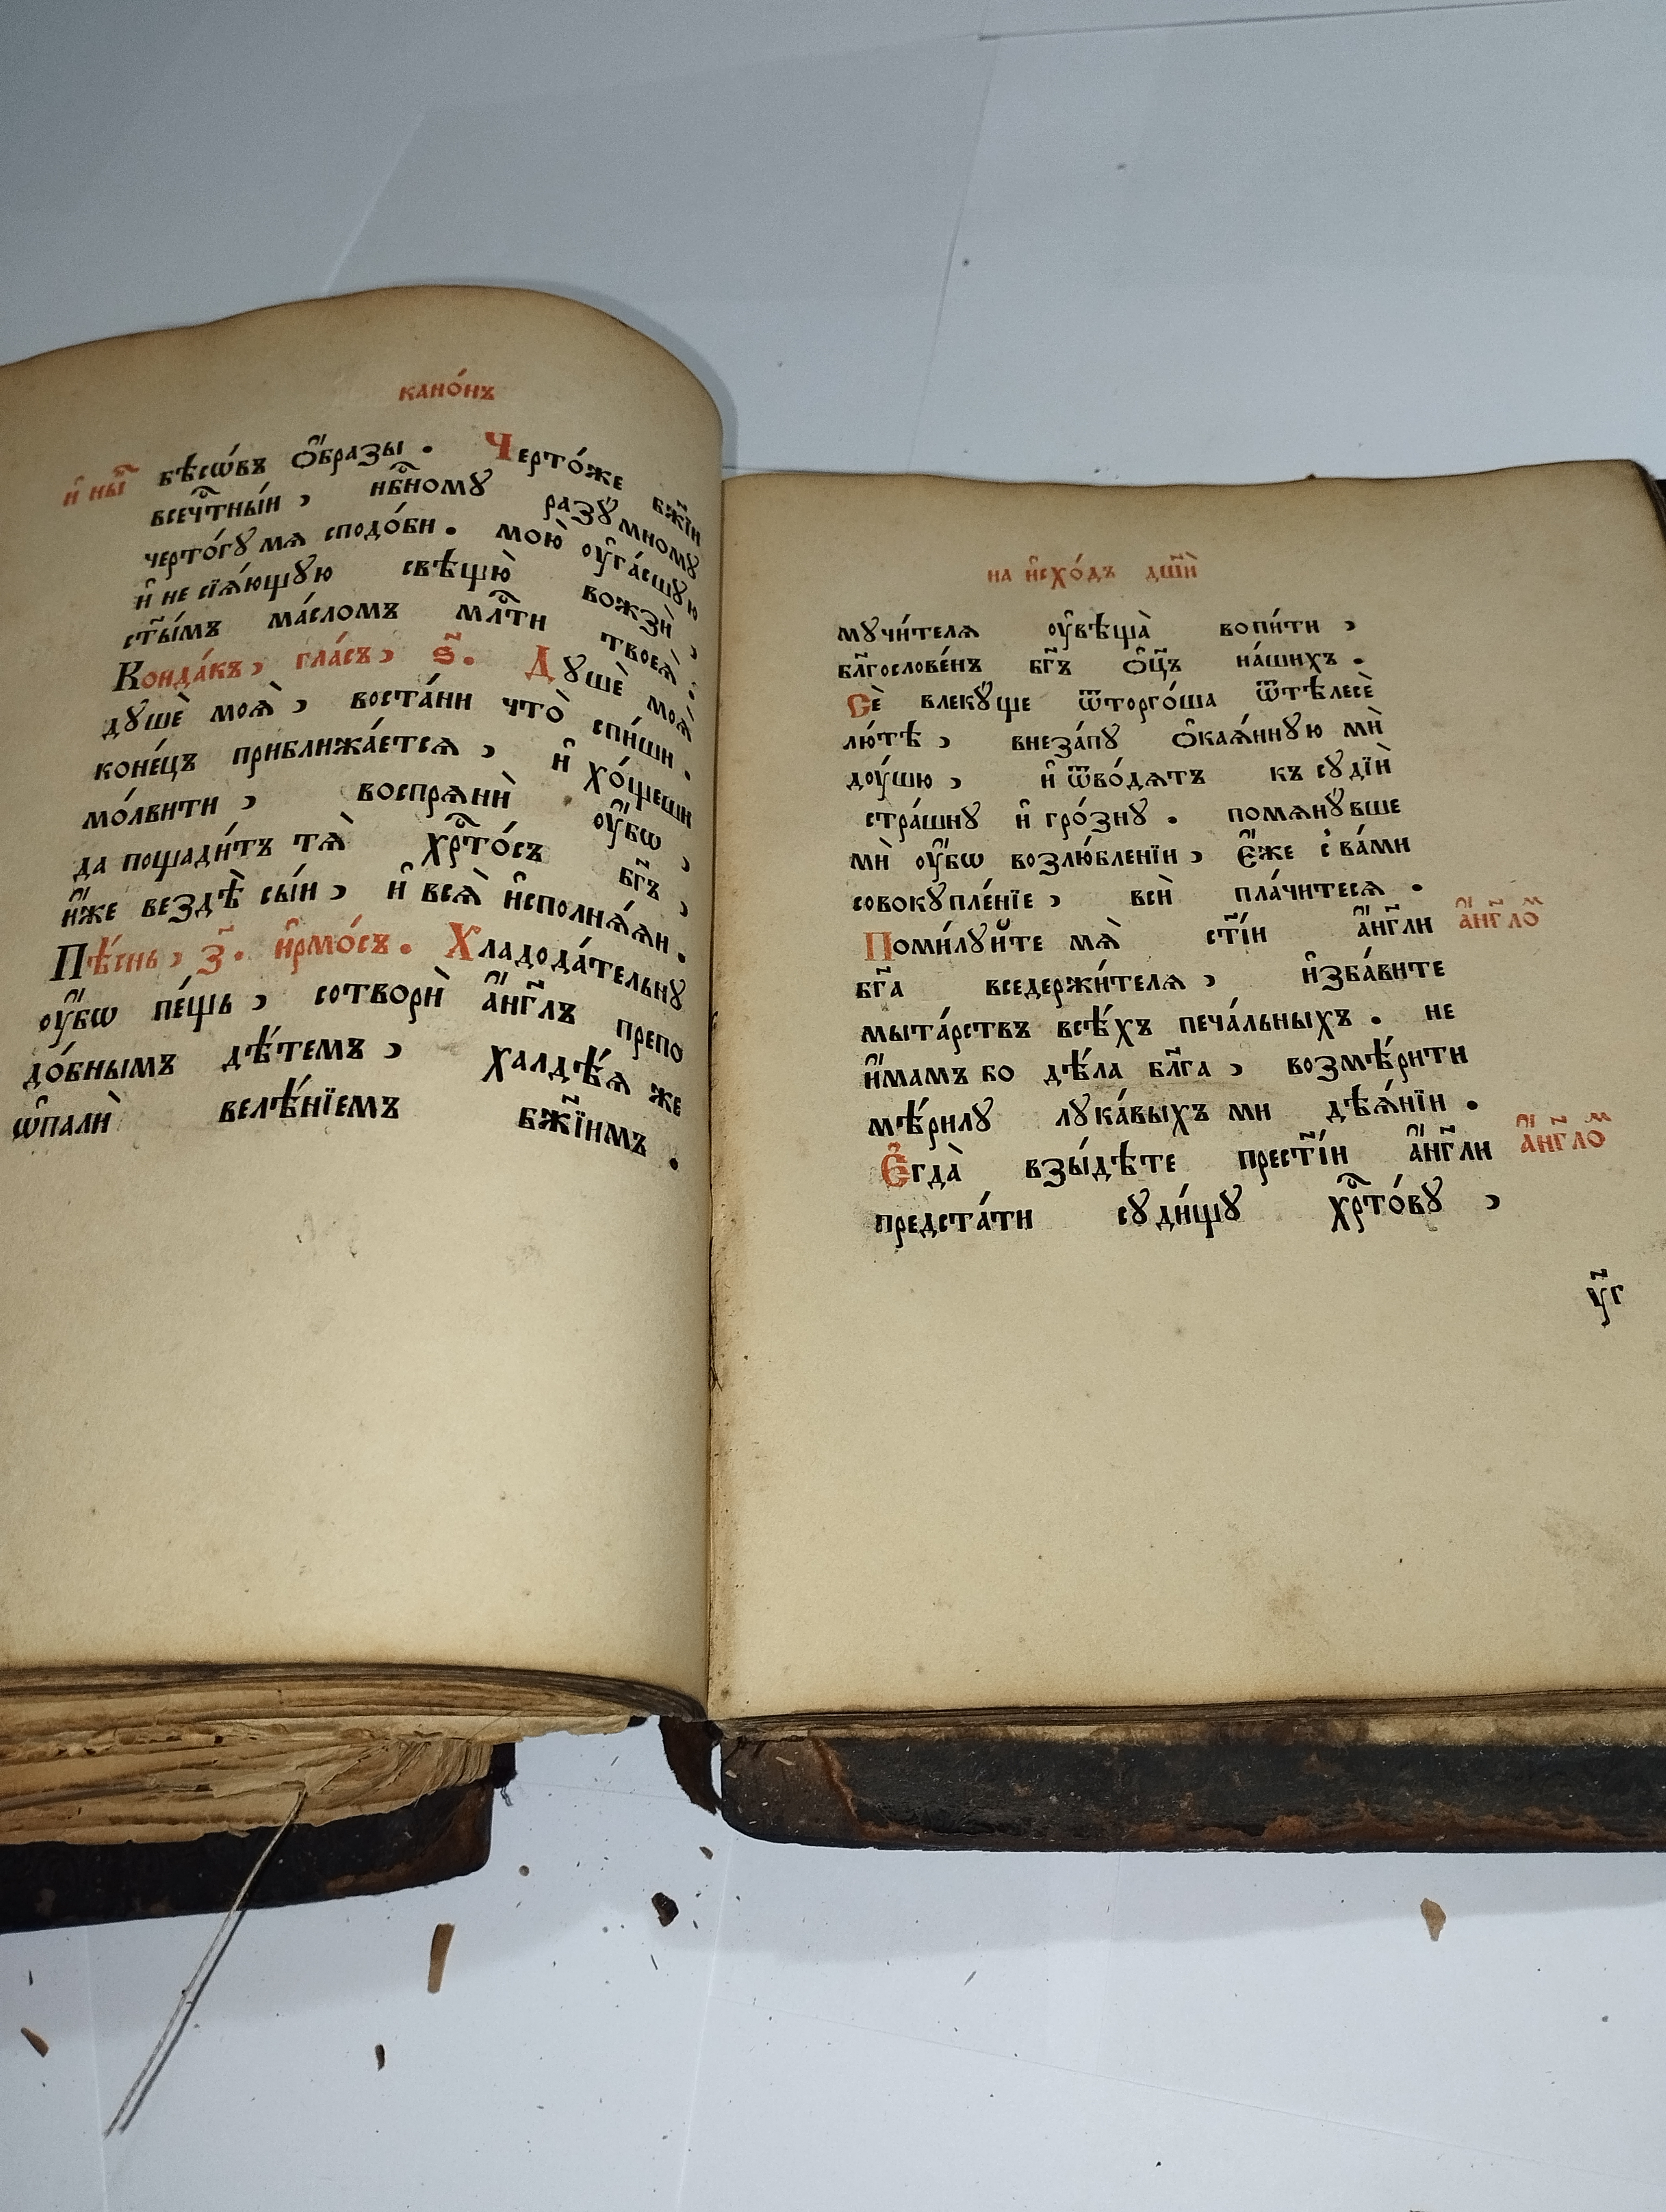 кано́нъ
и҆ ны҃
бѣсѡ́въ ѻ҆́бразы. Черто́же бж҃їи
всечⷭ҇тны́и, нбⷭ҇ному разꙋ́мному
черто́гꙋ мѧ сподо́би. мою̀ ᲂу҆га́сшꙋю
и҆ не сїѧ́ющꙋю свѣщю̀ вожзѝ,
ст҃ы́мъ ма́сломъ млⷭ҇ти твоеѧ̀:
Конда́къ, гла́съ, ѕ҃. Дꙋшѐ моѧ̀
дꙋшѐ моѧ̀, воста́ни что̀ спи́ши.
коне́цъ приближа́етсѧ, и҆ хо́щеши
мо́лвити, воспрѧнѝ ᲂу҆́бѡ,
да пощади́тъ тѧ̀ хрⷭ҇то́съ бг҃ъ,
и҆́же вездѣ̀ сы́и, и҆ всѧ̀ и҆сполнѧ́ѧи.
Пѣ́снь, з҃. и҆рмо́съ. Хладода́тельнꙋ
ᲂу҆́бѡ пе́щь, сотворѝ а҆́нг҃лъ препо
до́бнымъ дѣ́темъ, халдѣ́ѧ же
ѡ҆палѝ велѣ́нїемъ бж҃їимъ.
на и҆схо́дъ дш҃ѝ
мꙋчи́телѧ ᲂу҆вѣща̀ вопи́ти,
блг҃ослове́нъ бг҃ъ ѻ҆ц҃ъ на́шихъ.
Сѐ влекꙋ́ще ѿторго́ша ѿтѣлесѐ
лю́тѣ, внеза́пꙋ ѻ҆каѧ́ннꙋю мѝ
дᲂу́шю, и҆ ѿво́дѧтъ къ сꙋдїѝ
стра́шнꙋ и҆ гро́знꙋ. помѧнꙋ́вше
мѝ ᲂу҆́бѡ возлю́бленїи, є҆́же с̾ ва́ми
совокꙋпле́нїе, всѝ пла́читесѧ.
Поми́лꙋйте мѧ̀ ст҃і́и а҆́нг҃ли а҆́нг҃ло́ⷨ
бг҃а вседержи́телѧ, и҆зба́вите
мыта́рствъ всѣ́хъ печа́льныхъ. не
и҆́мамъ бо дѣ́ла бл҃га, возмѣ́рити
мѣ́рилꙋ лꙋка́выхъ ми дѣѧ́нїи.
Є҆гда̀ взы́дѣте прест҃і́и а҆́нг҃ли а҆́нг҃ло́ⷨ
предста́ти сꙋди́щꙋ хрⷭ҇то́вꙋ,
у҃г